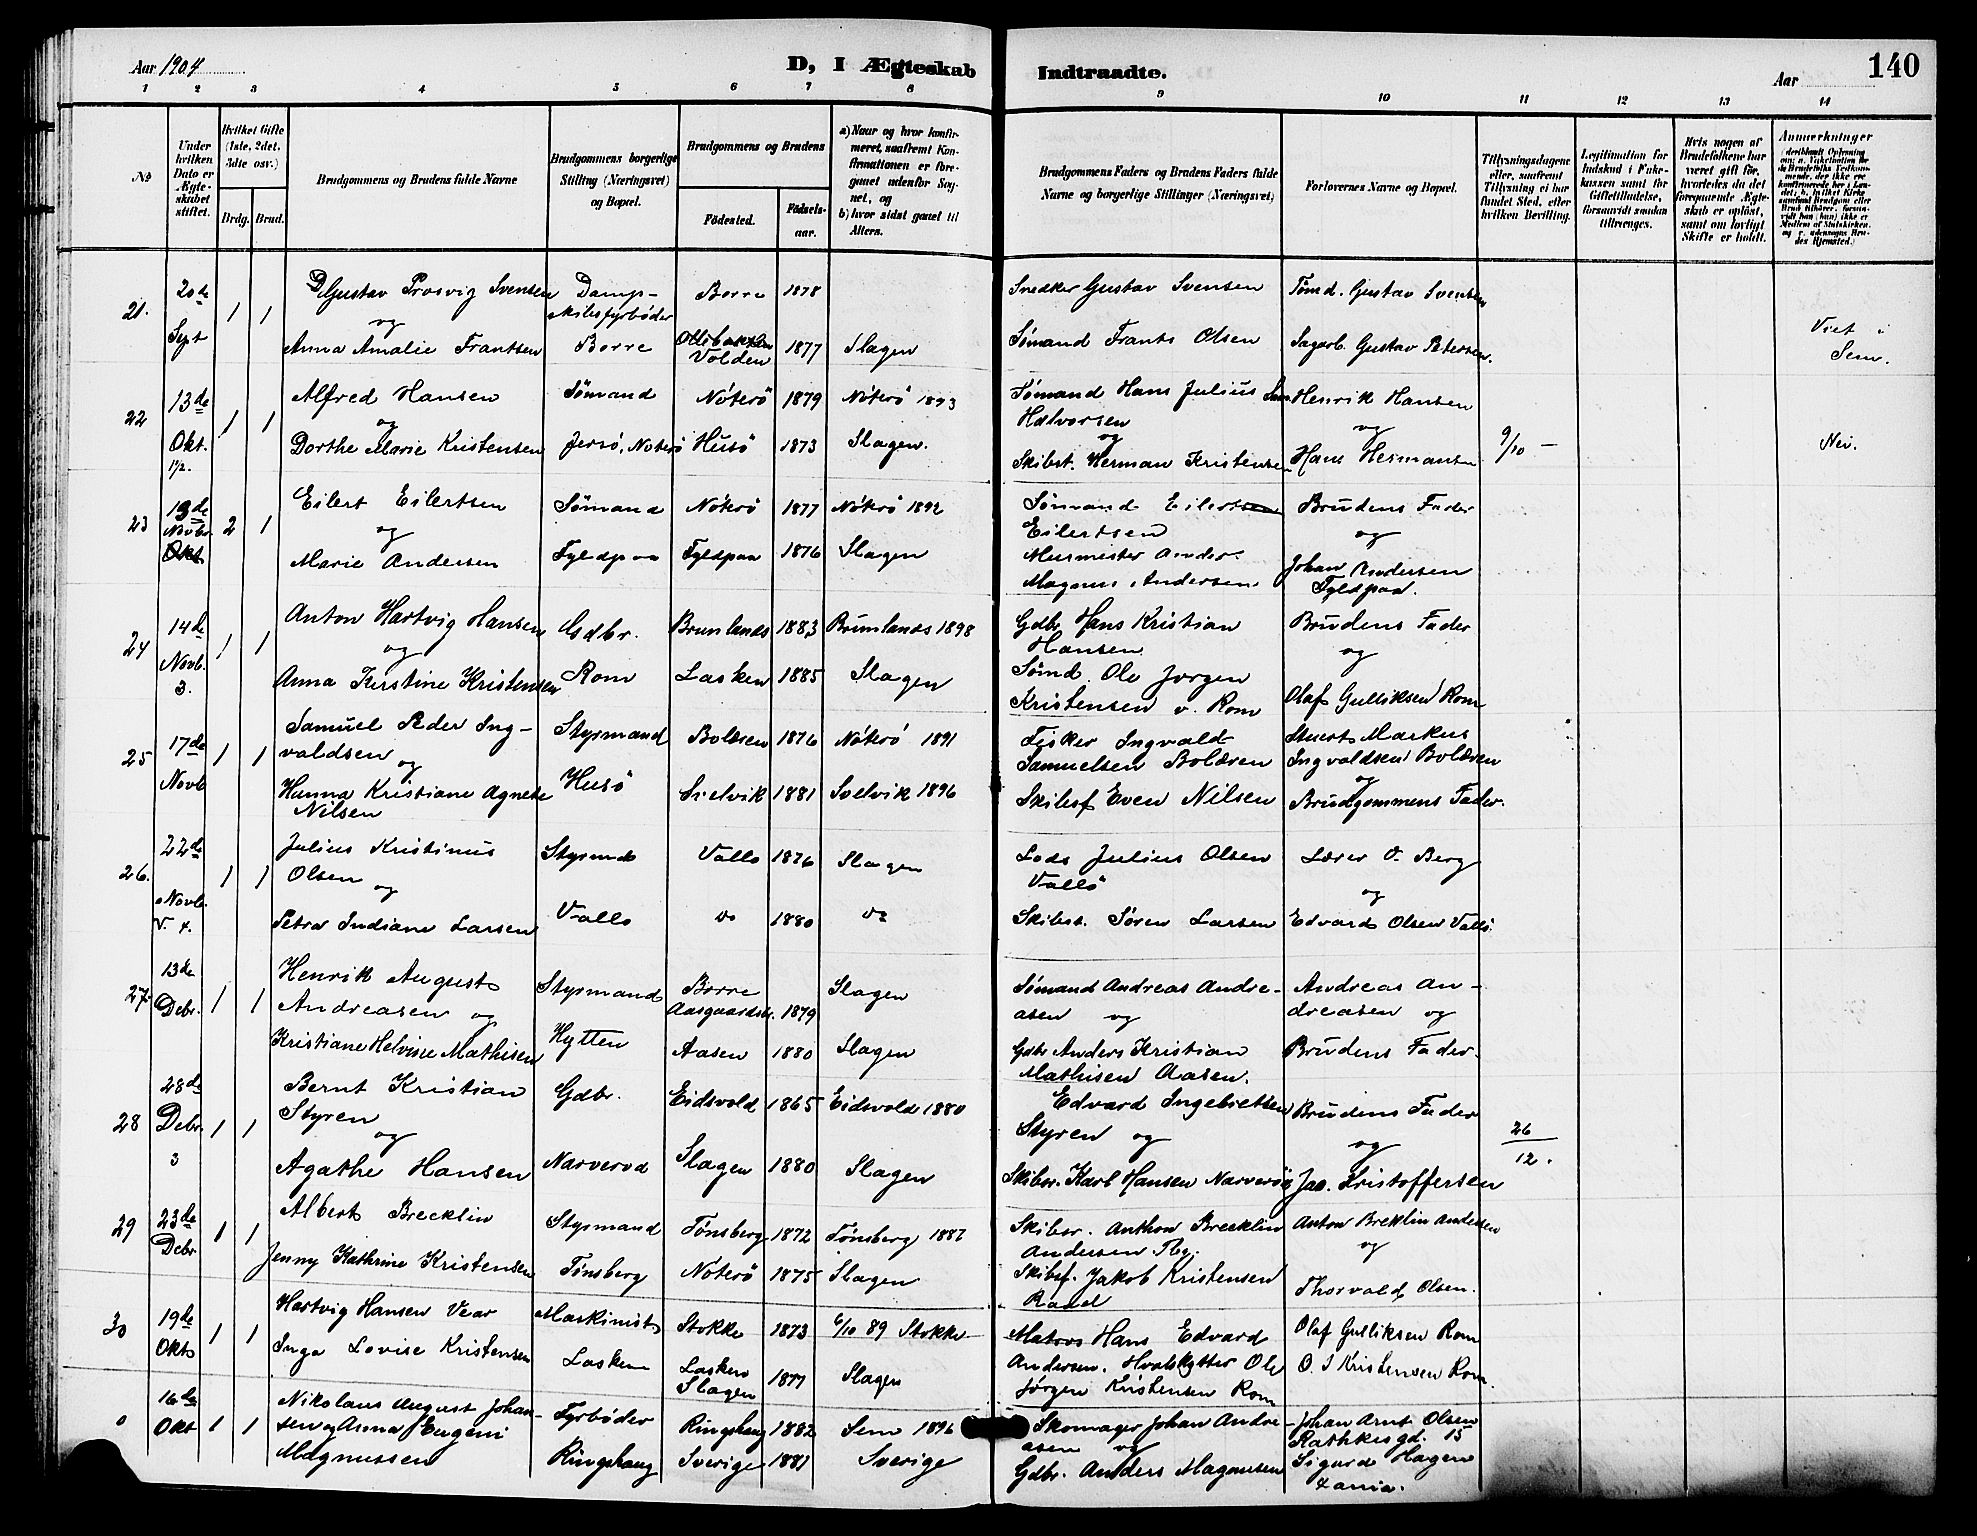 Aar 1904
D, I Ægteskab
Indtraadte.
Aar
140
1 2 3 4 5 6 7 8 9 10 11 12 13 14
No
Under hvilken Dato er Ægteskabet stiftet.
Hvilket Gifte (1ste, 2det, 3dte osv.)
Brdg. Brud.
Brudgommens og Brudens fulde Navne
Brudgommens borgerlige Stilling (Næringsvei) og Bopæl.
Brudgommens og Brudens
Födested.
Födselsaar.
a) Naar og hvor konfirmeret, saafremt Konfirmationen er foregaaet udenfor Sognet, og
b) hvor sidst gaaet til Alters.
Brudgommens Faders og Brudens Faders fulde Navne og borgerlige Stillinger (Næringsvei)
Forlovernes Navne og Bopæl.
Tillysningsdagene eller, saafremt Tillysning ei har fundet Sted, efter hvilken Bevilling.
Legitimation for Indskud i Enkekassen samt for Giftetilladelse, forsaavidt saadan tiltrænges.
Hvis nogen af Brudefolkene har været gift för, hvorledes da det foregaaende Ægteskab er oplöst, samt om lovligt Skifte er holdt.
Anmærkninger
21. 20de Sept 1 1 Gustav Prosvig Svensen Damp-skibsfyrböder Borre 1878 Snedker Gustav Svensen Tömd. Gustav Svensen
og
Anna Amalie Frantsen Borre Volden 1877 Slagen Sömand Frants Olsen Sagarb. Gustav Petersen. Viet i Sem.
22 13de Okt. 1 1 Alfred Hansen Sömand Nöterö 1879 Nöterö 1893 Sömand Hans Julius Halvorsen Henrik Hansen
og
Dorthe Marie Kristensen Jersö, Nöterö Husö 1873 Slagen. Skibst. Herman Kristensen Hans Hermansen 9/10 — Nei.
23 13de Novbr. 2 1 Eilert Eilertsen Sömand Nöterö 1877 Nöterö 1892 Sömand Eilert Eilertsen Brudens Fader
og
Marie Andersen Fyldpaa Fyldpaa 1876 Slagen Murmester Magnus Andersen. Johan Andersen Fyldpaa.
24 14de Novb. 3. 1 1 Anton Hartvig Hansen Gdbr. Brunlands 1883 Brunlands 1898 Gdbr. Hans Kristian Hansen Brudens Fader
og
Anna Kirstine Kristensen Rom Lasken 1885 Slagen Sömd. Ole Jørgen Kristensen v. Rom Olaf Gulliksen Rom
25 17de Novb 1 1 Samuel Peder Ingvaldsen Styrmand Bolæren 1876 Nöterö 1891 Fisker Ingvald Samuelsen Bolæren Stuert Markus Ingvaldsen Bolæren
og
Hanna Kristiane Agnete Nilsen Husö Svelvik 1881 Svelvik 1896 Skibsf Even Nilsen Brudgommens Fader.
26. 22de Novb. V. 4. 1 1 Julius Kristinus Olsen Styrmd Vallö 1876 Slagen Lods Julius Olsen Vallö Lærer O. Berg
og
Petra Indiane Larsen Vallö do 1880 do Skibst. Sören Larsen Edvard Olsen Vallö.
27 13de Debr. 1 1 Henrik August Andreasen Styrmand Borre Aasgaardst. 1879 Slagen Sömand Andreas Andreasen Andreas Andreasen og
og
Kristiane Helvine Mathisen Hytten Aasen 1880 Slagen Gdbr Anders Kristian Mathisen Aasen. Brudens Fader.
28 28de Debr. 3 1 1 Bernt Kristian Styren Gdbr. Eidsvold 1865 Eidsvold 1880 Edvard Ingebretsen Styren og Brudens Fader
og
Agathe Hansen Narverød Slagen 1880 Slagen Skibsr. Karl Hansen Narverød Jac. Kristoffersen 26/12.
29 23de Debr 1 1 Albert Brecklin Styrmand Tönsberg 1872 Tönsberg 1887 Skibsr. Anthon Brecklin Andersen Tbg. Anton Breklin Andersen
og
Jenny Kathrine Kristensen Tönsberg Nöterö 1875 Slagen Skibsf. Jakob Kristensen Thorvald Olsen.
30 19de Okt 1 1 Hartvig Hansen Vear Maskinist Stokke 1873 6/10 89 Stokke Matros Hans Edvard Andersen. Olaf Gulliksen Rom
Inga Lovise Kristensen Lasken Lasken Slagen 1877 Slagen Hvalskytter Ole Jørgen Kristensen Rom O. J Kristensen Rom.
16de Okt 1 1 Nikolaus August Johansen og Anna Eugeni Magnussen Fyrböder Ringshaug Ringshaug 1882 Sem 1896 Skomager Johan Andreasen og Johan Arnt Olsen Rathkesgd. 15
Sverige 1881 Sverige Gdbr. Anders Magnussen Sigurd Hagen